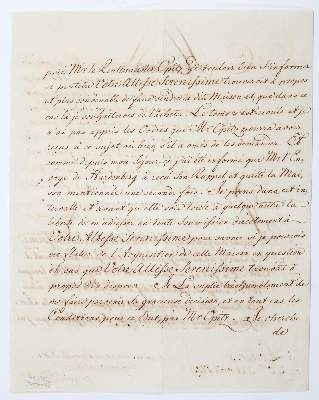 prié Mr le Rentmeister Opitz de vouloir bien s'informer
si peutetre Votre Altesse Serenissime trouveroit à propos
et plus convenable de faire vendre la dite Maison et que dans ce
cas là je souhaiterois de l'acheter. Le tems s'est écoulé et je
n'ai pas appris les Ordres que Mr Opitz pourra avoir
reçus à ce sujet ou bien s'il a omis de les demander. Et
comme depuis mon Sejour ici j'ai été informé que Mr l'En-
voyé de Hardenberg a reçu son Rappel et quitte la Mai-
son mentionnée une seconde fois. Je prens dans cet in-
tervalle et avant qu'elle soit louée à quelqu'autre la
liberté de m'adresser en toute Soumission directement à
Votre Altesse Serenissime pour savoir si je pourrois
me flatter de l'Acquisition de cette Maison en question
en cas que Votre Altesse Serenissime trouvat à
propos d'en disposer. Je La suplie très humblement de
me faire parvenir Sa gracieuse décision, et en tout cas les
Conditions pour ce But par Mr Opitz. Je cherche
de